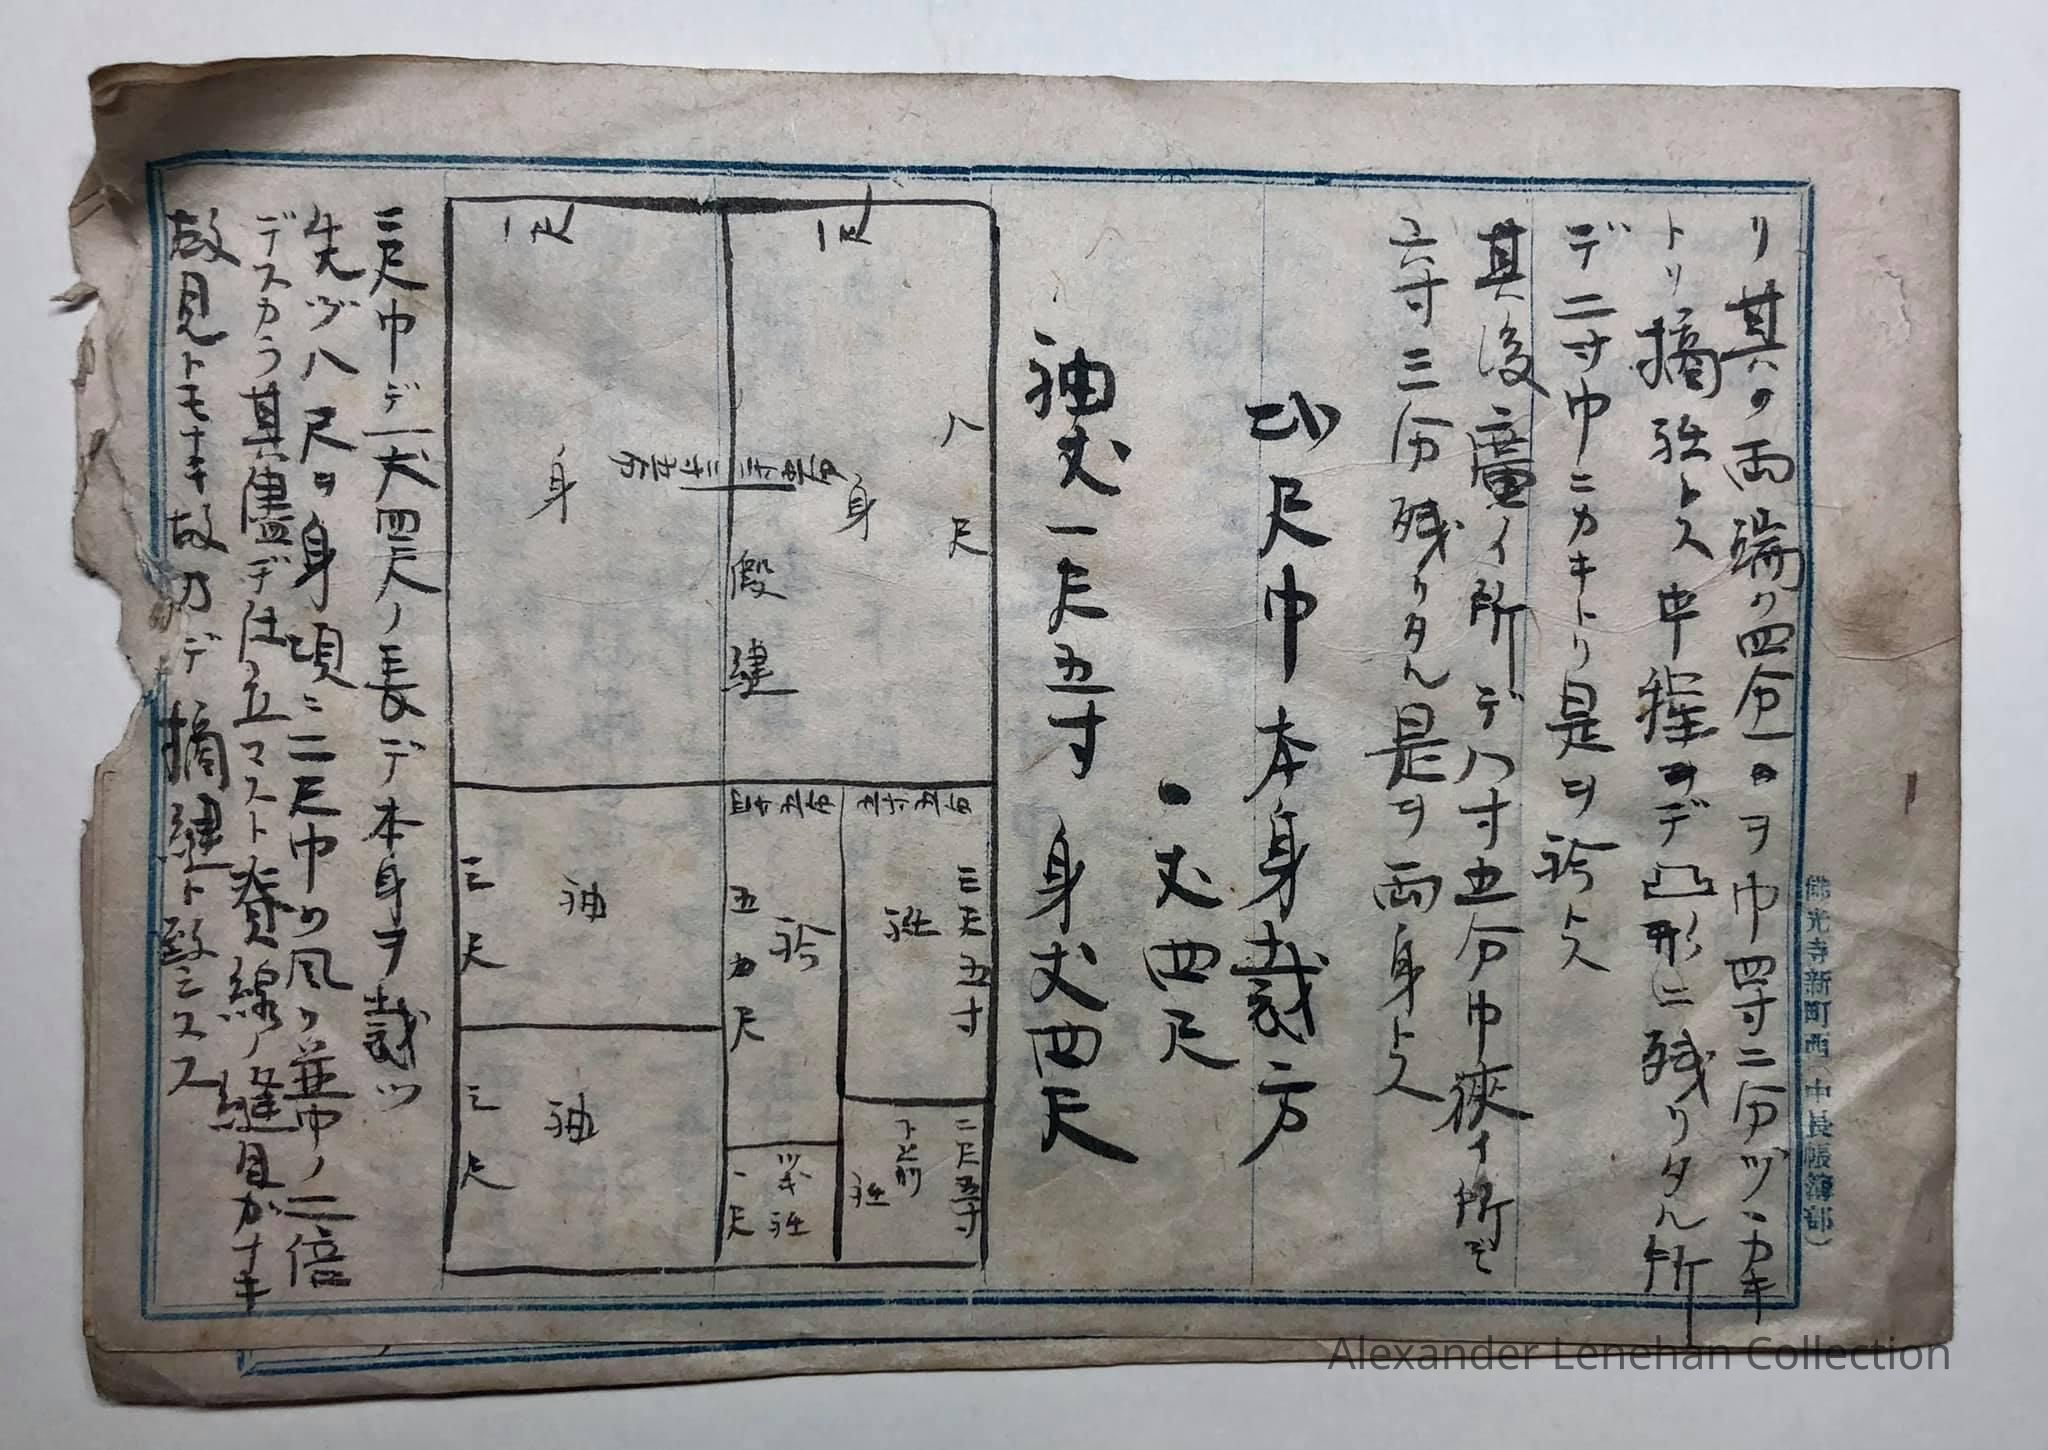 リ其ノ両端ヲ四分一ヲ巾四寸二分ヅヽカキ
トリ摘衽トス中程ヲデ凸形ニ残リタル所
デ二寸巾ニカキトリ是ヲ衿トス
其後廣イ所デ八寸五分巾狹イ所デ
六寸三分残リタル是ヲ両身トス
尺巾本身裁方
丈四尺
袖丈一尺五寸 身丈四尺
一尺
一尺
八尺
身
身
三寸五分
假縫
三尺五寸
衽
衿
五カ尺
袖
三尺
袖
三尺
二尺五寸
下前
衽
ツギ衽
一尺
二尺巾デ一丈四尺ノ長デ本身ヲ裁ツ
先ヅ八尺ヲ身頃ニ二尺巾ヲ風リ並巾ノ二倍
デスカラ其儘デ仕立マスト脊線ノ縫目ガナキ
故見トモナキ故カデ摘縫ト致ミスス
佛光寺新町西(中長帳簿部)
Alexander Lenehan Collection